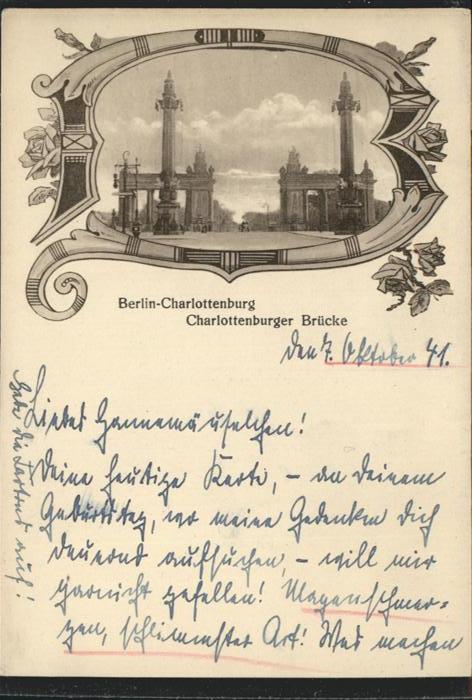 Berlin-Charlottenburg
Charlottenburger Brücke
den 7. Oktober 41.
Liebes Hannemäuselchen!
Deine heutige Karte, – an Deinem
Geburtstag, wo meine Gedanken Dich
dauernd aufsuchen, – will mir
garnicht gefallen! Magenschmer-
zen, schlimmster Art! Was machen
Hebe die Karten auf!